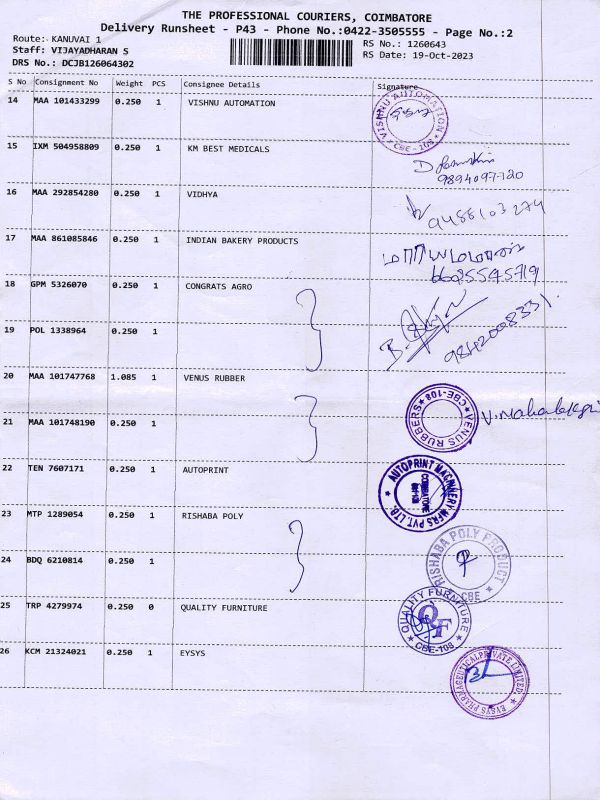 THE PROFESSIONAL COURIERS, COIMBATORE
Delivery Runsheet - P43 - Phone No.:0422-3505555 - Page No.:2
Route: KANUVAI 1
RS No.: 1260643
Staff: VIJAYADHARAN S
RS Date: 19-Oct-2023
DRS No.: DCJB126064302
S No Consignment No Weight PCS Consignee Details Signature
14 MAA 101433299 0.250 1 VISHNU AUTOMATION
VISHNU AUTOMATION
CBE - 108
15 IXM 504958809 0.250 1 KM BEST MEDICALS
9894097720
16 MAA 292854280 0.250 1 VIDHYA
9488103274
17 MAA 861085846 0.250 1 INDIAN BAKERY PRODUCTS
18 GPM 5326070 0.250 1 CONGRATS AGRO
9842008331
19 POL 1338964 0.250 1
20 MAA 101747768 1.085 1 VENUS RUBBER
VENUS RUBBERS
CBE-108
21 MAA 101748190 0.250 1
22 TEN 7607171 0.250 1 AUTOPRINT
AUTOPRINT MACHINERY MFRS PVT. LTD.
COIMBATORE
23 MTP 1289054 0.250 1 RISHABA POLY
RISHABA POLY PRODUCT
CBE
24 BDQ 6210814 0.250 1
25 TRP 4279974 0.250 0 QUALITY FURNITURE
QUALITY FURNITURE
QF
CBE-108
26 KCM 21324021 0.250 1 EYSYS
EYSYS PHARMACEUTICAL PRIVATE LIMITED